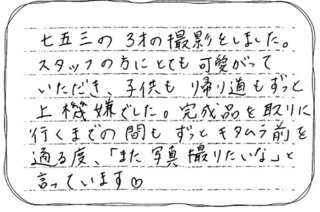 七五三の3才の撮影をしました。
スタッフの方にとても可愛がって
いただき、子供も帰り道もずっと
上機嫌でした。完成品を取りに
行くまでの間もずっとキタムラ前を
通る度、「また写真撮りたいな」と
言っています♡